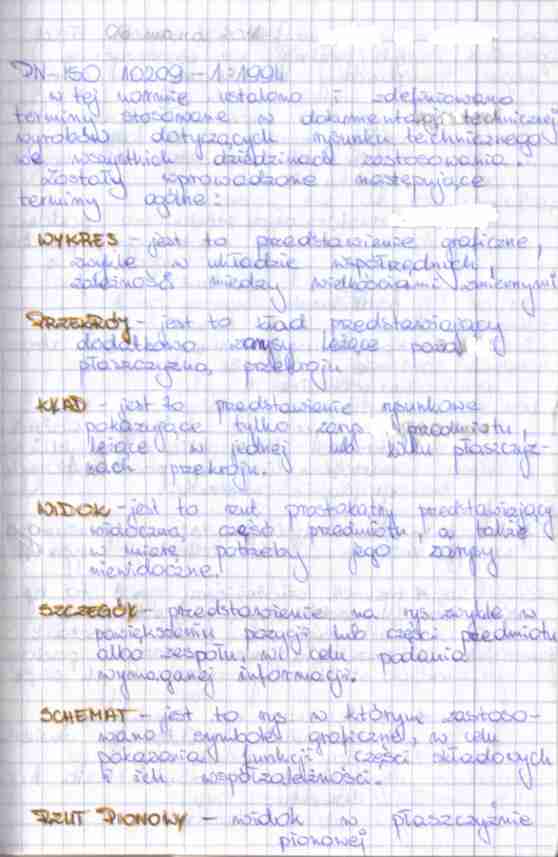 PN-ISO 10209-1:1994
w tej normie ustalono i zdefiniowano
terminy stosowane w dokumentacji technicznej
wyrobów dotyczących rysunku technicznego
we wszystkich dziedzinach zastosowania.
Zostały wprowadzone następujące
terminy ogólne:
WYKRES - jest to przedstawienie graficzne,
zwykle w układzie współrzędnych
zależność między wielkościami zmiennymi
PRZEKRÓJ - jest to kład przedstawiający
dodatkowo zarysy leżące poza
płaszczyzną przekroju
KŁAD - jest to przedstawienie rysunkowe
pokazujące tylko zarys przedmiotu,
leżące w jednej lub kilku płaszczyz-
nach przekroju.
WIDOK - jest to rzut prostokątny przedstawiający
widoczną część przedmiotu, a także
w miarę potrzeby jego zarysy
niewidoczne.
SZCZEGÓŁ - przedstawienie na rys. zwykle w
powiększeniu pozycji lub części przedmiotu
albo zespołu, w celu podania
wymaganej informacji.
SCHEMAT - jest to rys w którym zastoso-
wano symbole graficzne, w celu
pokazania funkcji części składowych
i ich współzależności.
RZUT PIONOWY - widok w płaszczyźnie
pionowej